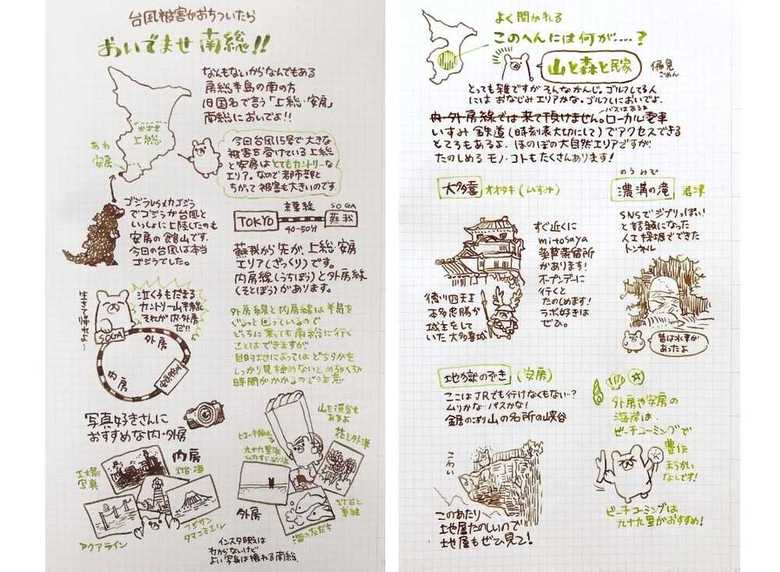 台風被害がおちついたら
おいでませ 南総!!
なんもないからなんでもある
房総半島の南の方
旧国名で言う「上総・安房」
南総においでよ!!
かずさ
上総
あわ
安房
今回台風15号で大きな
被害を受けている上総
と安房はとてもカントリーな
エリア。なので都市部と
ちがって被害も大きいのです
ゴジラVSメカゴジラ
でゴジラが台風と
いっしょに上陸したのも
安房の館山です。
今回の台風は本当
ゴジラでした。
京葉線
TOKYO
40-50分
SOGA
蘇我
蘇我から先が、上総、安房
エリア(ざっくり)です。
内房線(うちぼう)と外房線
(そとぼう)があります。
生きて帰れよー
泣く子もだまる
カントリー山手線
それが内・外房
だ!!
SOGA
外房
内房
外房線と内房線は半島を
ぐるっと回っているので
どっちに乗っても南総に行く
ことはできますが
目的地によってはどちらかを
しっかり見極めないと
時間がかかるので注意
写真好きさんに
おすすめな内・外房
内房
工場
写真
アクアライン
外房
山も渓谷も
あるよ
花と列車
インスタ映えは
わからないけど
よい写真は撮れる南総
よく聞かれる
このへんには何が……?
山と森と民家
偏見
ごめん
とっても雑ですがそんなかんじ。ゴルフしてる人
にはおなじみエリアかな。ゴルフにおいでよ。
内・外房線では来て頂けません。ローカル電車
バスはあるよ
いすみ鉄道(時刻表大切にして)でアクセスできる
ところもあるよ。ほのぼの大自然エリアですが
たのしめるモノ・コトもたくさんあります!
大多喜
オオタキ(いすみ)
すぐ近くに
mitosaya
薬草蒸留所
があります!
オープンデーに
行くと
たのしめます!
ラボ好きは
ぜひ。
徳川四天王
本多忠勝が
城主をして
いた大多喜城
のうみぞ
濃溝の滝
君津
SNSでジブリっぽい!
と話題になった
人工採掘でできた
トンネル
昔は水車が
あったよ
地獄のぞき
(安房)
ここはJRでも行けなくもない?
ムリかな バスかな!
鋸のこり山の名所の峡谷
こわい
このあたり
地層たのしいので
地層もぜひ見て!
外房や安房の
海岸は
ビーチコーミングで
ビーチコーミングは
九十九里がおすすめ!